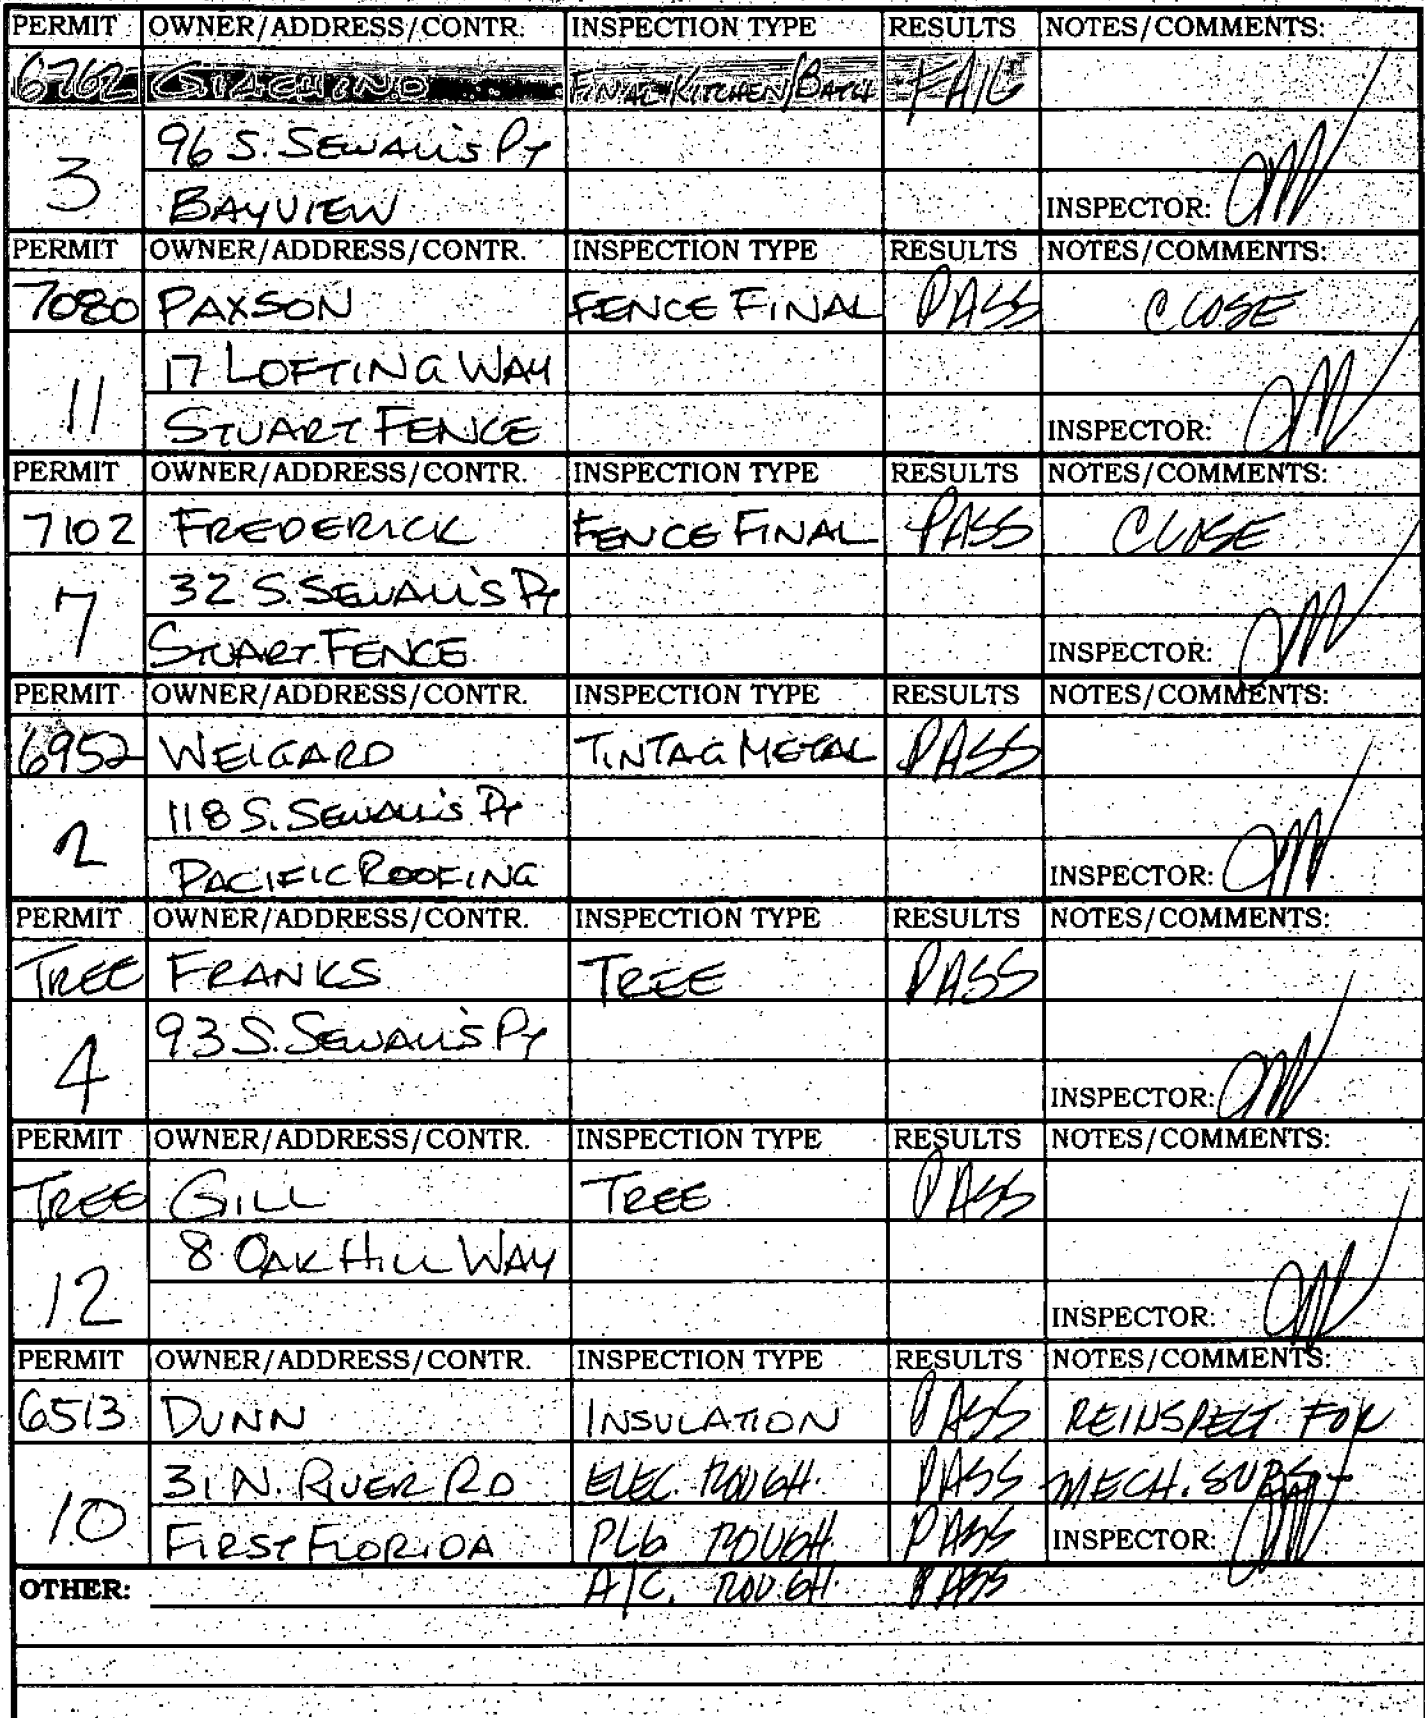 PERMIT OWNER/ADDRESS/CONTR. INSPECTION TYPE RESULTS NOTES/COMMENTS:
6762 GIACHINO FINAL KITCHEN/BATH FAIL
3 96 S. SEWALL'S PT
BAYVIEW INSPECTOR:
PERMIT OWNER/ADDRESS/CONTR. INSPECTION TYPE RESULTS NOTES/COMMENTS:
7080 PAXSON FENCE FINAL PASS CLOSE
11 17 LOFTING WAY
STUART FENCE INSPECTOR:
PERMIT OWNER/ADDRESS/CONTR. INSPECTION TYPE RESULTS NOTES/COMMENTS:
7102 FREDERICK FENCE FINAL PASS CLOSE
7 32 S. SEWALL'S PT
STUART FENCE INSPECTOR:
PERMIT OWNER/ADDRESS/CONTR. INSPECTION TYPE RESULTS NOTES/COMMENTS:
6952 WEIGARD TINTAG METAL PASS
2 118 S. SEWALL'S PT
PACIFIC ROOFING INSPECTOR:
PERMIT OWNER/ADDRESS/CONTR. INSPECTION TYPE RESULTS NOTES/COMMENTS:
TREE FRANKS TREE PASS
4 93 S. SEWALL'S PT
INSPECTOR:
PERMIT OWNER/ADDRESS/CONTR. INSPECTION TYPE RESULTS NOTES/COMMENTS:
TREE GILL TREE PASS
12 8 OAK HILL WAY
INSPECTOR:
PERMIT OWNER/ADDRESS/CONTR. INSPECTION TYPE RESULTS NOTES/COMMENTS:
6513 DUNN INSULATION PASS REINSPECT FOR
10 31 N. RIVER RD ELEC. ROUGH. PASS MECH. SUBST
FIRST FLORIDA PLG ROUGH PASS INSPECTOR:
OTHER: A/C. ROUGH. PASS